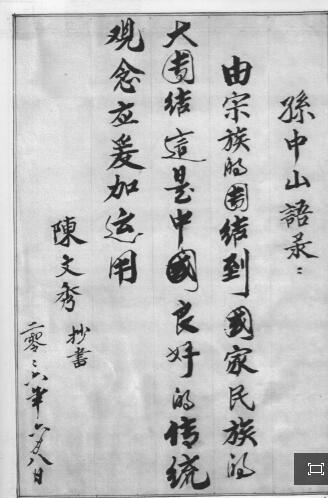 孫中山語录：
由宗族的团结到國家民族的
大团结這是中國良好的传统
观念应妥加运用
陳文秀 抄書
二零 六年六月八日